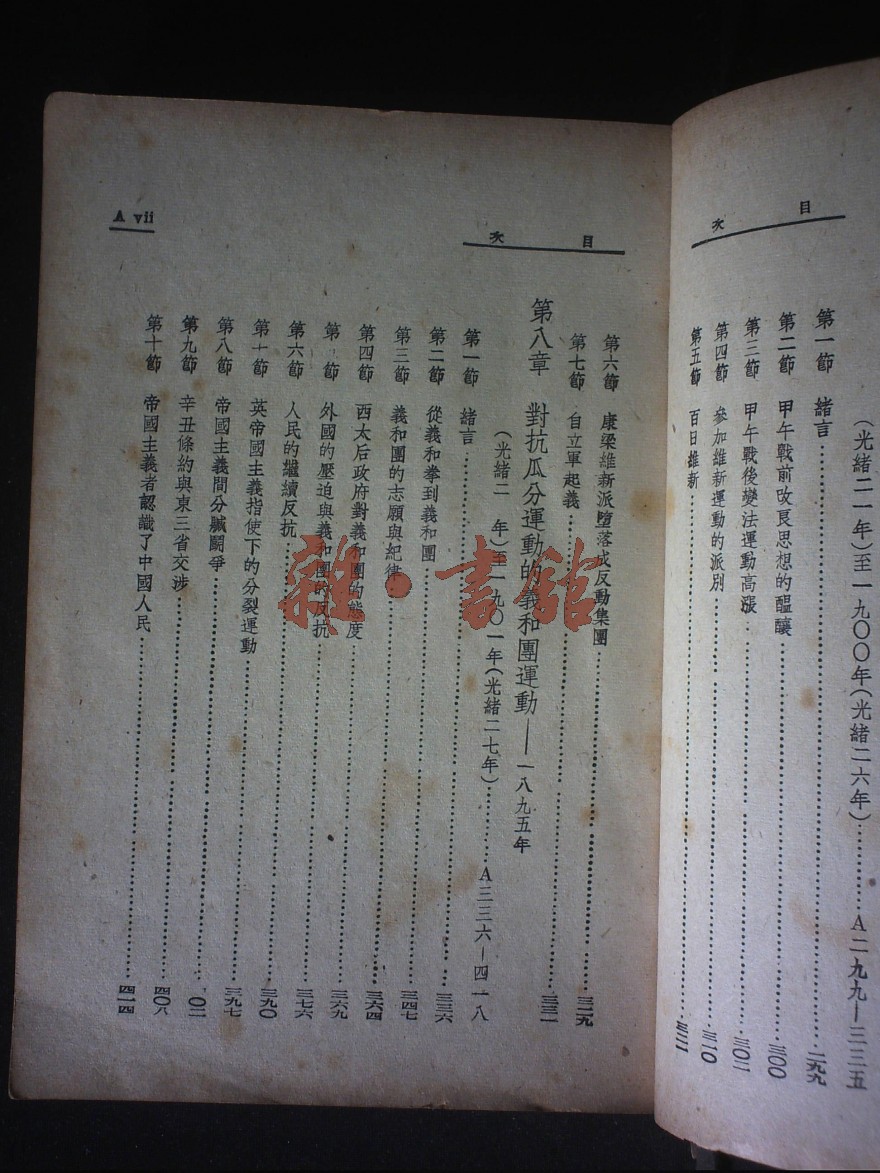 目次
(光緒二一年)至一九〇〇年(光緒二六年)…………A二九九—三三五
第一節 緒言…………二九九
第二節 甲午戰前改良思想的醞釀…………三〇〇
第三節 甲午戰後變法運動高漲…………三〇二
第四節 參加維新運動的派別…………三一〇
第五節 百日維新…………
目次
第六節 康梁維新派墮落成反動集團…………三二九
第七節 自立軍起義…………三三一
第八章 對抗瓜分運動的義和團運動——一八九五年
(光緒二 年)至一九〇一年(光緒二七年)…………A三三六—四一八
第一節 緒言…………
第二節 從義和拳到義和團…………三三六
第三節 義和團的志願與紀律…………三四七
第四節 西太后政府對義和團的態度…………三六四
第 節 外國的壓迫與義和團的反抗…………三六九
第六節 人民的繼續反抗…………三七六
第七節 英帝國主義指使下的分裂運動…………三九〇
第八節 帝國主義間分贓鬪爭…………三九七
第九節 辛丑條約與東三省交涉…………〇二
第十節 帝國主義者認識了中國人民…………四〇八
四一四
A vii
雜·書館